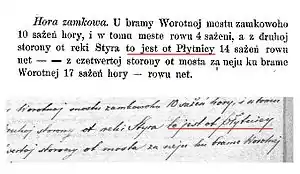 Hora zamkowa. U bramy Worotnoj mostu zamkowoho
10 sažeń hory, i w tomu meste rowu 4 saženi, a z druhoj
storony ot reki Styra to jest ot Płytnicy 14 sažeń rowu
net — — z czetwertoj storony ot mosta za neju ku brame
Worotnej 17 sažeń hory — rowu net.
Worotnoj mostu zamkowoho 10 sažeń hory, i w tomu
druhoj storony ot reki Styra to jest ot Płytnicy
storony ot mosta za neju ku brame Worotnej